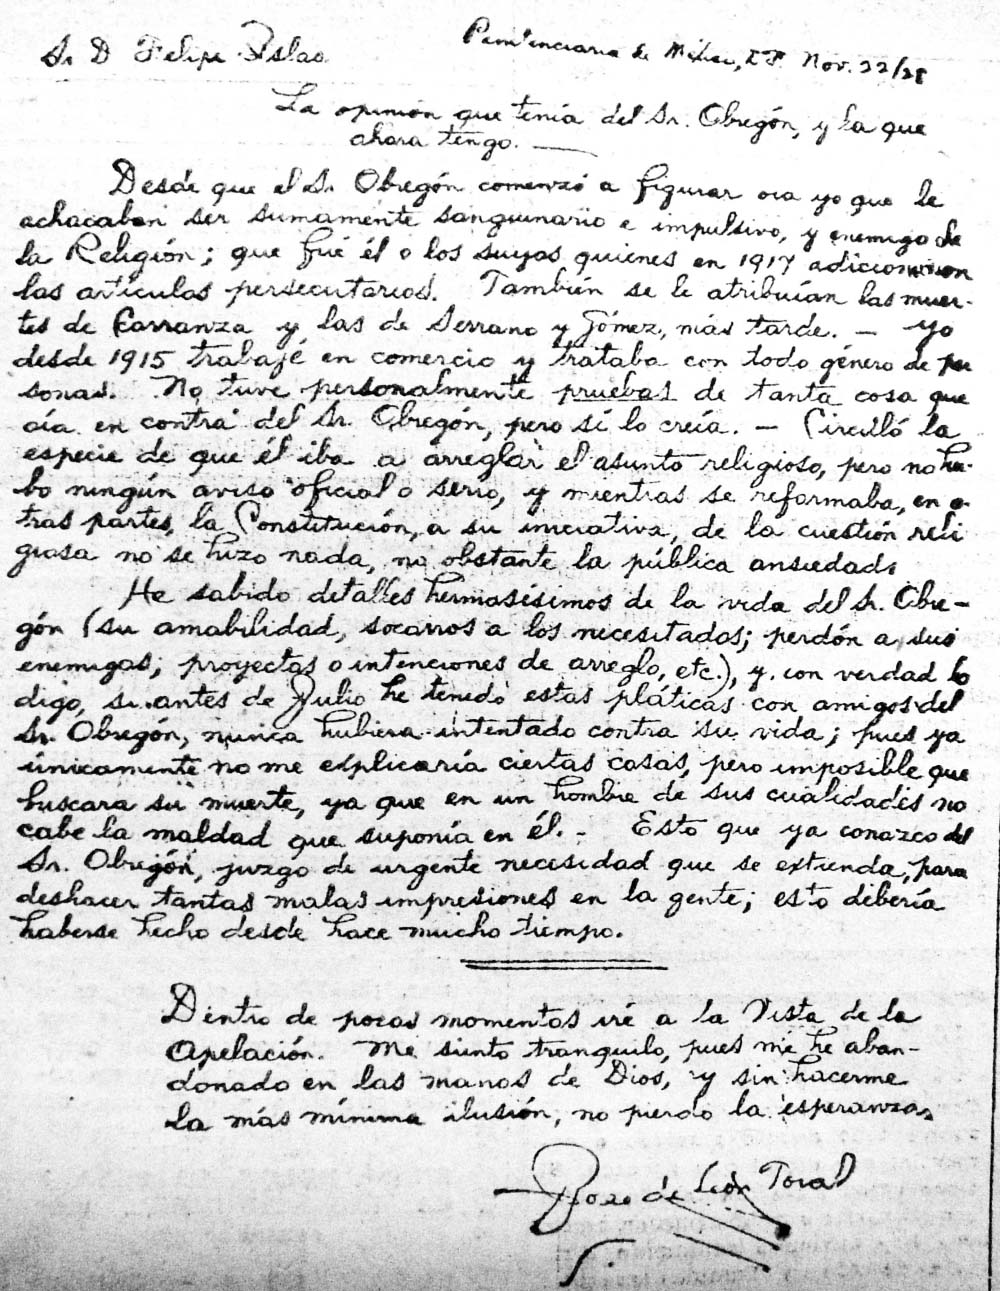 Sr. D Felipe Islas.
Penitenciaria de México, D.F. Nov. 22/28
La opinión que tenía del Sr. Obregón, y la que
ahora tengo. —
Desde que el Sr. Obregón comenzó a figurar oía yo que le
achacaban ser sumamente sanguinario e impulsivo, y enemigo de
la Religión; que fué él o los suyos quienes en 1917 adicionaron
los artículos persecutorios. También se le atribuían las muer-
tes de Carranza y las de Serrano y Gómez, más tarde. — Yo
desde 1915 trabajé en comercio y trataba con todo género de per
sonas. No tuve personalmente pruebas de tanta cosa que
oía en contra del Sr. Obregón, pero sí lo creía. — Circuló la
especie de que él iba a arreglar el asunto religioso, pero no hu-
bo ningún aviso oficial o serio, y mientras se reformaba, en o-
tras partes, la Constitución, a su iniciativa, de la cuestión reli
giosa no se hizo nada, no obstante la pública ansiedad.
He sabido detalles hermosísimos de la vida del Sr. Obre-
gón (su amabilidad, socorros a los necesitados; perdón a sus
enemigos; proyectos o intenciones de arreglo, etc.), y con verdad lo
digo, si antes de Julio he tenido estas pláticas con amigos del
Sr. Obregón, nunca hubiera intentado contra su vida; pues ya
únicamente no me explicaría ciertas cosas, pero imposible que
buscara su muerte, ya que en un hombre de sus cualidades no
cabe la maldad que suponía en él. - Esto que ya conozco del
Sr. Obregón, juzgo de urgente necesidad que se extienda, para
deshacer tantas malas impresiones en la gente; esto debería
haberse hecho desde hace mucho tiempo.
Dentro de pocos momentos iré a la Vista de la
Apelación. Me siento tranquilo, pues me he aban-
donado en las manos de Dios, y sin hacerme
la más mínima ilusión, no pierdo la esperanza.
José de León Toral